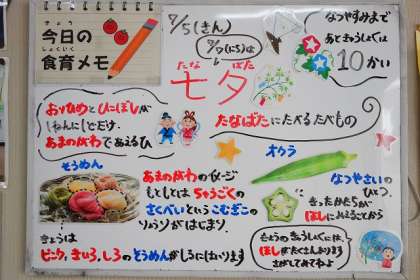 きょう
今日の
しょくいく
食育メモ
7/5(きん)
7/7(にち)は
たな ばた
七夕
なつやすみまで
あときゅうしょくは
10かい
おりひめとひこぼしが
1ねんに1どだけ、
あまのがわであえるひ
たなばたにたべるたべもの
そうめん
あまのがわのイメージ
もともとは、ちゅうごくの
さくべいという こむぎこの
りょうりがはじまり。
きょうは
ピンク、きいろ、しろのそうめんがしるにはいります
オクラ
なつやさいの
ひとつ。
きったかたちが
ほしにみえることから
きょうのきゅうしょくには、
ほしがたくさんあります
さがしてみてね♪